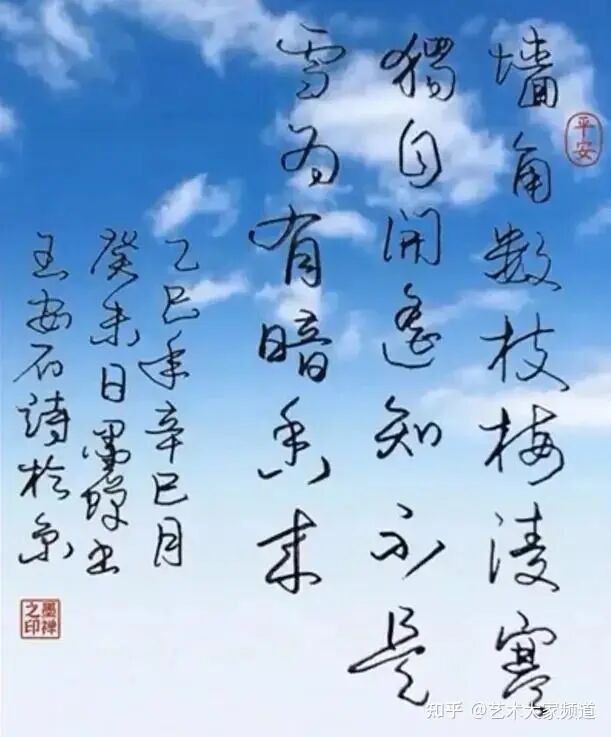 墙角数枝梅凌寒
獨自開遥知不是
雪为有暗香来
乙巳年辛巳月
癸未日墨禅书
王安石詩於京
平安
墨禅
之印
知乎 @艺术大家频道